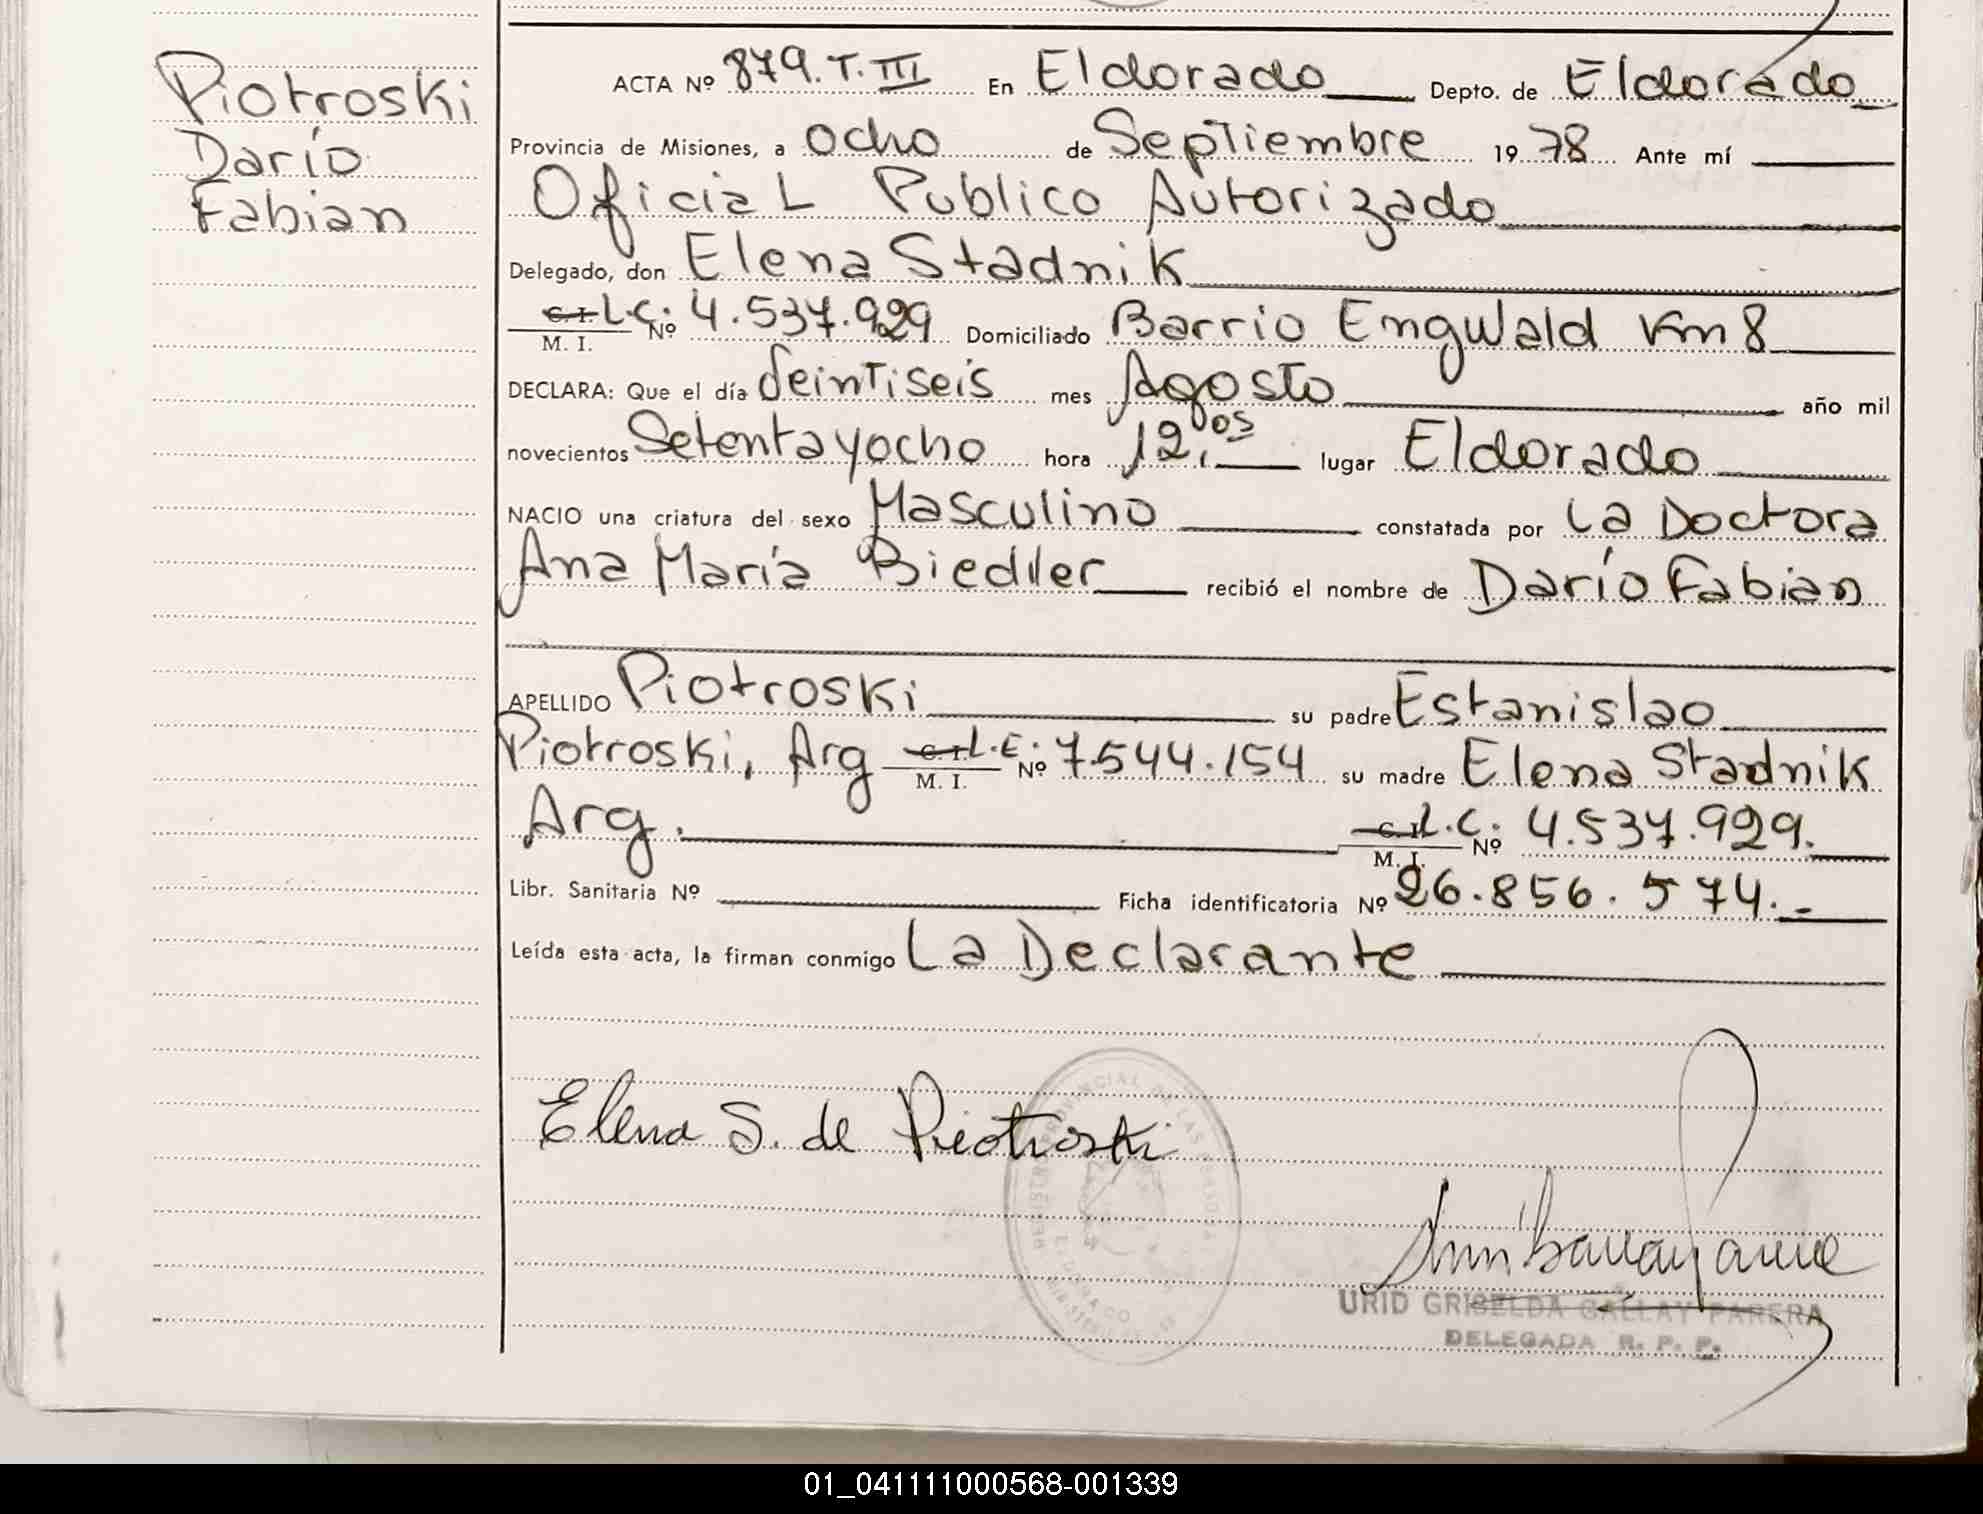 Piotroski
Darío
Fabian
ACTA Nº 879. T. III En Eldorado Depto. de Eldorado
Provincia de Misiones, a Ocho de Septiembre 19 78 Ante mí
Oficial Publico Autorizado
Delegado, don Elena Stadnik
C. I. L.C. M. I. Nº 4.537.929 Domiciliado Barrio Emgwald Km 8
DECLARA: Que el día Veintiseis mes Agosto año mil
novecientos Setenta y ocho hora 12,05 lugar Eldorado
NACIO una criatura del sexo Masculino constatada por La Doctora
Ana María Biedller recibió el nombre de Darío Fabian
APELLIDO Piotroski su padre Estanislao
Piotroski, Arg C. I. L.E. M. I. Nº 7.544.154 su madre Elena Stadnik
Arg. C. I. L.C. M. I. Nº 4.537.929.
Libr. Sanitaria Nº Ficha identificatoria Nº 26.856.574.-
Leída esta acta, la firman conmigo La Declarante
Elena S. de Piotroski
URID GRISELDA GALLAY PARERA
DELEGADA R. P. P.
01_041111000568-001339